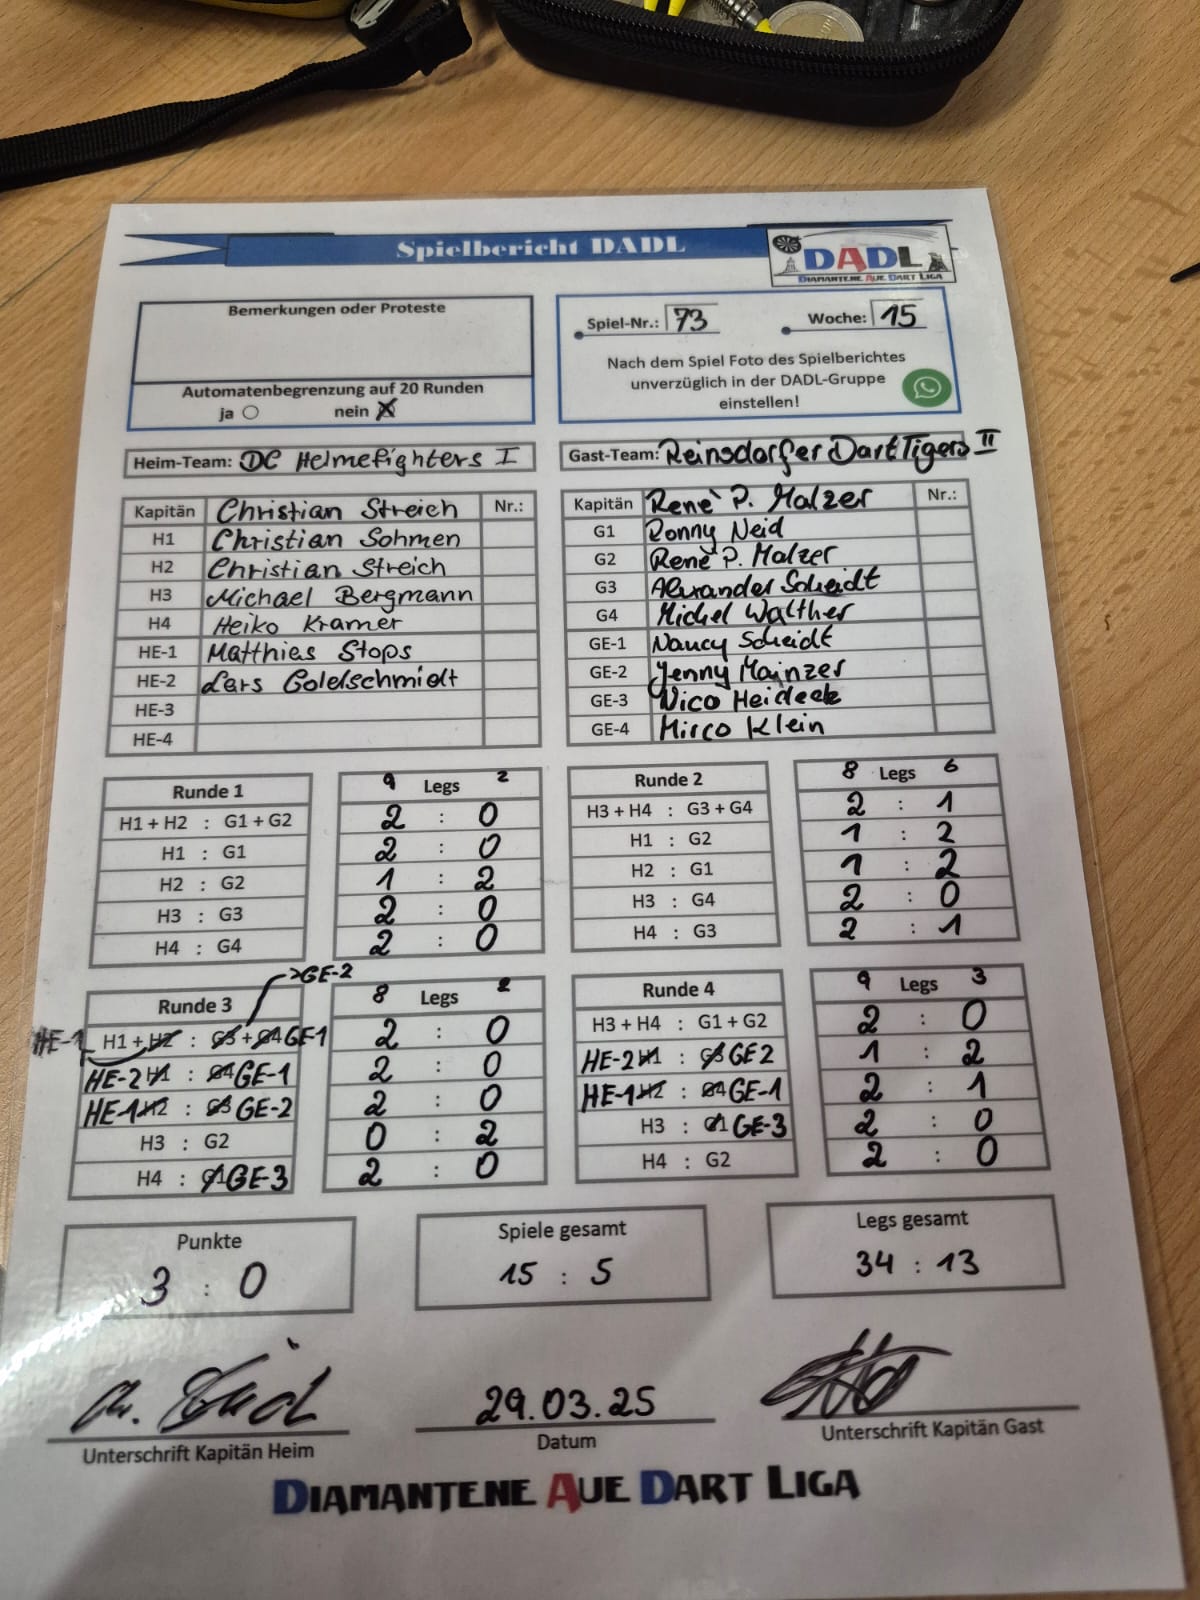 Spielbericht DADL
DADL
DIAMANTENE AUE DART LIGA
Bemerkungen oder Proteste
Automatenbegrenzung auf 20 Runden
ja nein X
Spiel-Nr.: 73 Woche: 15
Nach dem Spiel Foto des Spielberichtes
unverzüglich in der DADL-Gruppe
einstellen!
Heim-Team: DC Helmefighters I
Kapitän Christian Streich Nr.:
H1 Christian Sohmen
H2 Christian Streich
H3 Michael Bergmann
H4 Heiko Kramer
HE-1 Matthias Stops
HE-2 Lars Goldschmidt
HE-3
HE-4
Gast-Team: Reinsdorfer DartTigers II
Kapitän Renè P. Malzer Nr.:
G1 Ronny Neid
G2 Renè P. Malzer
G3 Alexander Scheidt
G4 Michel Walther
GE-1 Nancy Scheidt
GE-2 Jenny Mainzer
GE-3 Nico Heideck
GE-4 Mirco Klein
Runde 1 9 Legs 2
H1 + H2 : G1 + G2 2 : 0
H1 : G1 2 : 0
H2 : G2 1 : 2
H3 : G3 2 : 0
H4 : G4 2 : 0
Runde 2 8 Legs 6
H3 + H4 : G3 + G4 2 : 1
H1 : G2 1 : 2
H2 : G1 1 : 2
H3 : G4 2 : 0
H4 : G3 2 : 1
>GE-2
Runde 3 8 Legs 2
HE-1 H1 + H2 : G3 + G4 GE-1 2 : 0
HE-2 H1 : G4 GE-1 2 : 0
HE-1 H2 : G3 GE-2 2 : 0
H3 : G2 0 : 2
H4 : G1 GE-3 2 : 0
Runde 4 9 Legs 3
H3 + H4 : G1 + G2 2 : 0
HE-2 H1 : G3 GE2 1 : 2
HE-1 H2 : G4 GE-1 2 : 1
H3 : G1 GE-3 2 : 0
H4 : G2 2 : 0
Punkte
3 : 0
Spiele gesamt
15 : 5
Legs gesamt
34 : 13
29.03.25
Unterschrift Kapitän Heim
Datum
Unterschrift Kapitän Gast
DIAMANTENE AUE DART LIGA